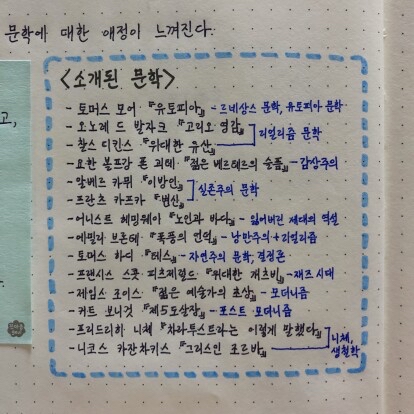 문학에 대한 애정이 느껴진다.
고,
<소개된 문학>
- 토머스 모어 『유토피아』 - 르네상스 문학, 유토피아 문학
- 오노레 드 발자크 『고리오 영감』
- 찰스 디킨스 『위대한 유산』
리얼리즘 문학
- 요한 볼프강 폰 괴테 『젊은 베르테르의 슬픔』 - 감상주의
- 알베르 카뮈 『이방인』
- 프란츠 카프카 『변신』
실존주의 문학
- 어니스트 헤밍웨이 『노인과 바다』 - 잃어버린 세대의 역설
- 에밀리 브론테 『폭풍의 언덕』 - 낭만주의 + 리얼리즘
- 토머스 하디 『테스』 - 자연주의 문학, 결정론
- 프랜시스 스콧 피츠제럴드 『위대한 개츠비』 - 재즈 시대
- 제임스 조이스 『젊은 예술가의 초상』 - 모더니즘
- 커트 보니것 『제5도살장』 - 포스트 모더니즘
- 프리드리히 니체 『차라투스트라는 이렇게 말했다』
- 니코스 카잔차키스 『그리스인 조르바』
니체,
생철학